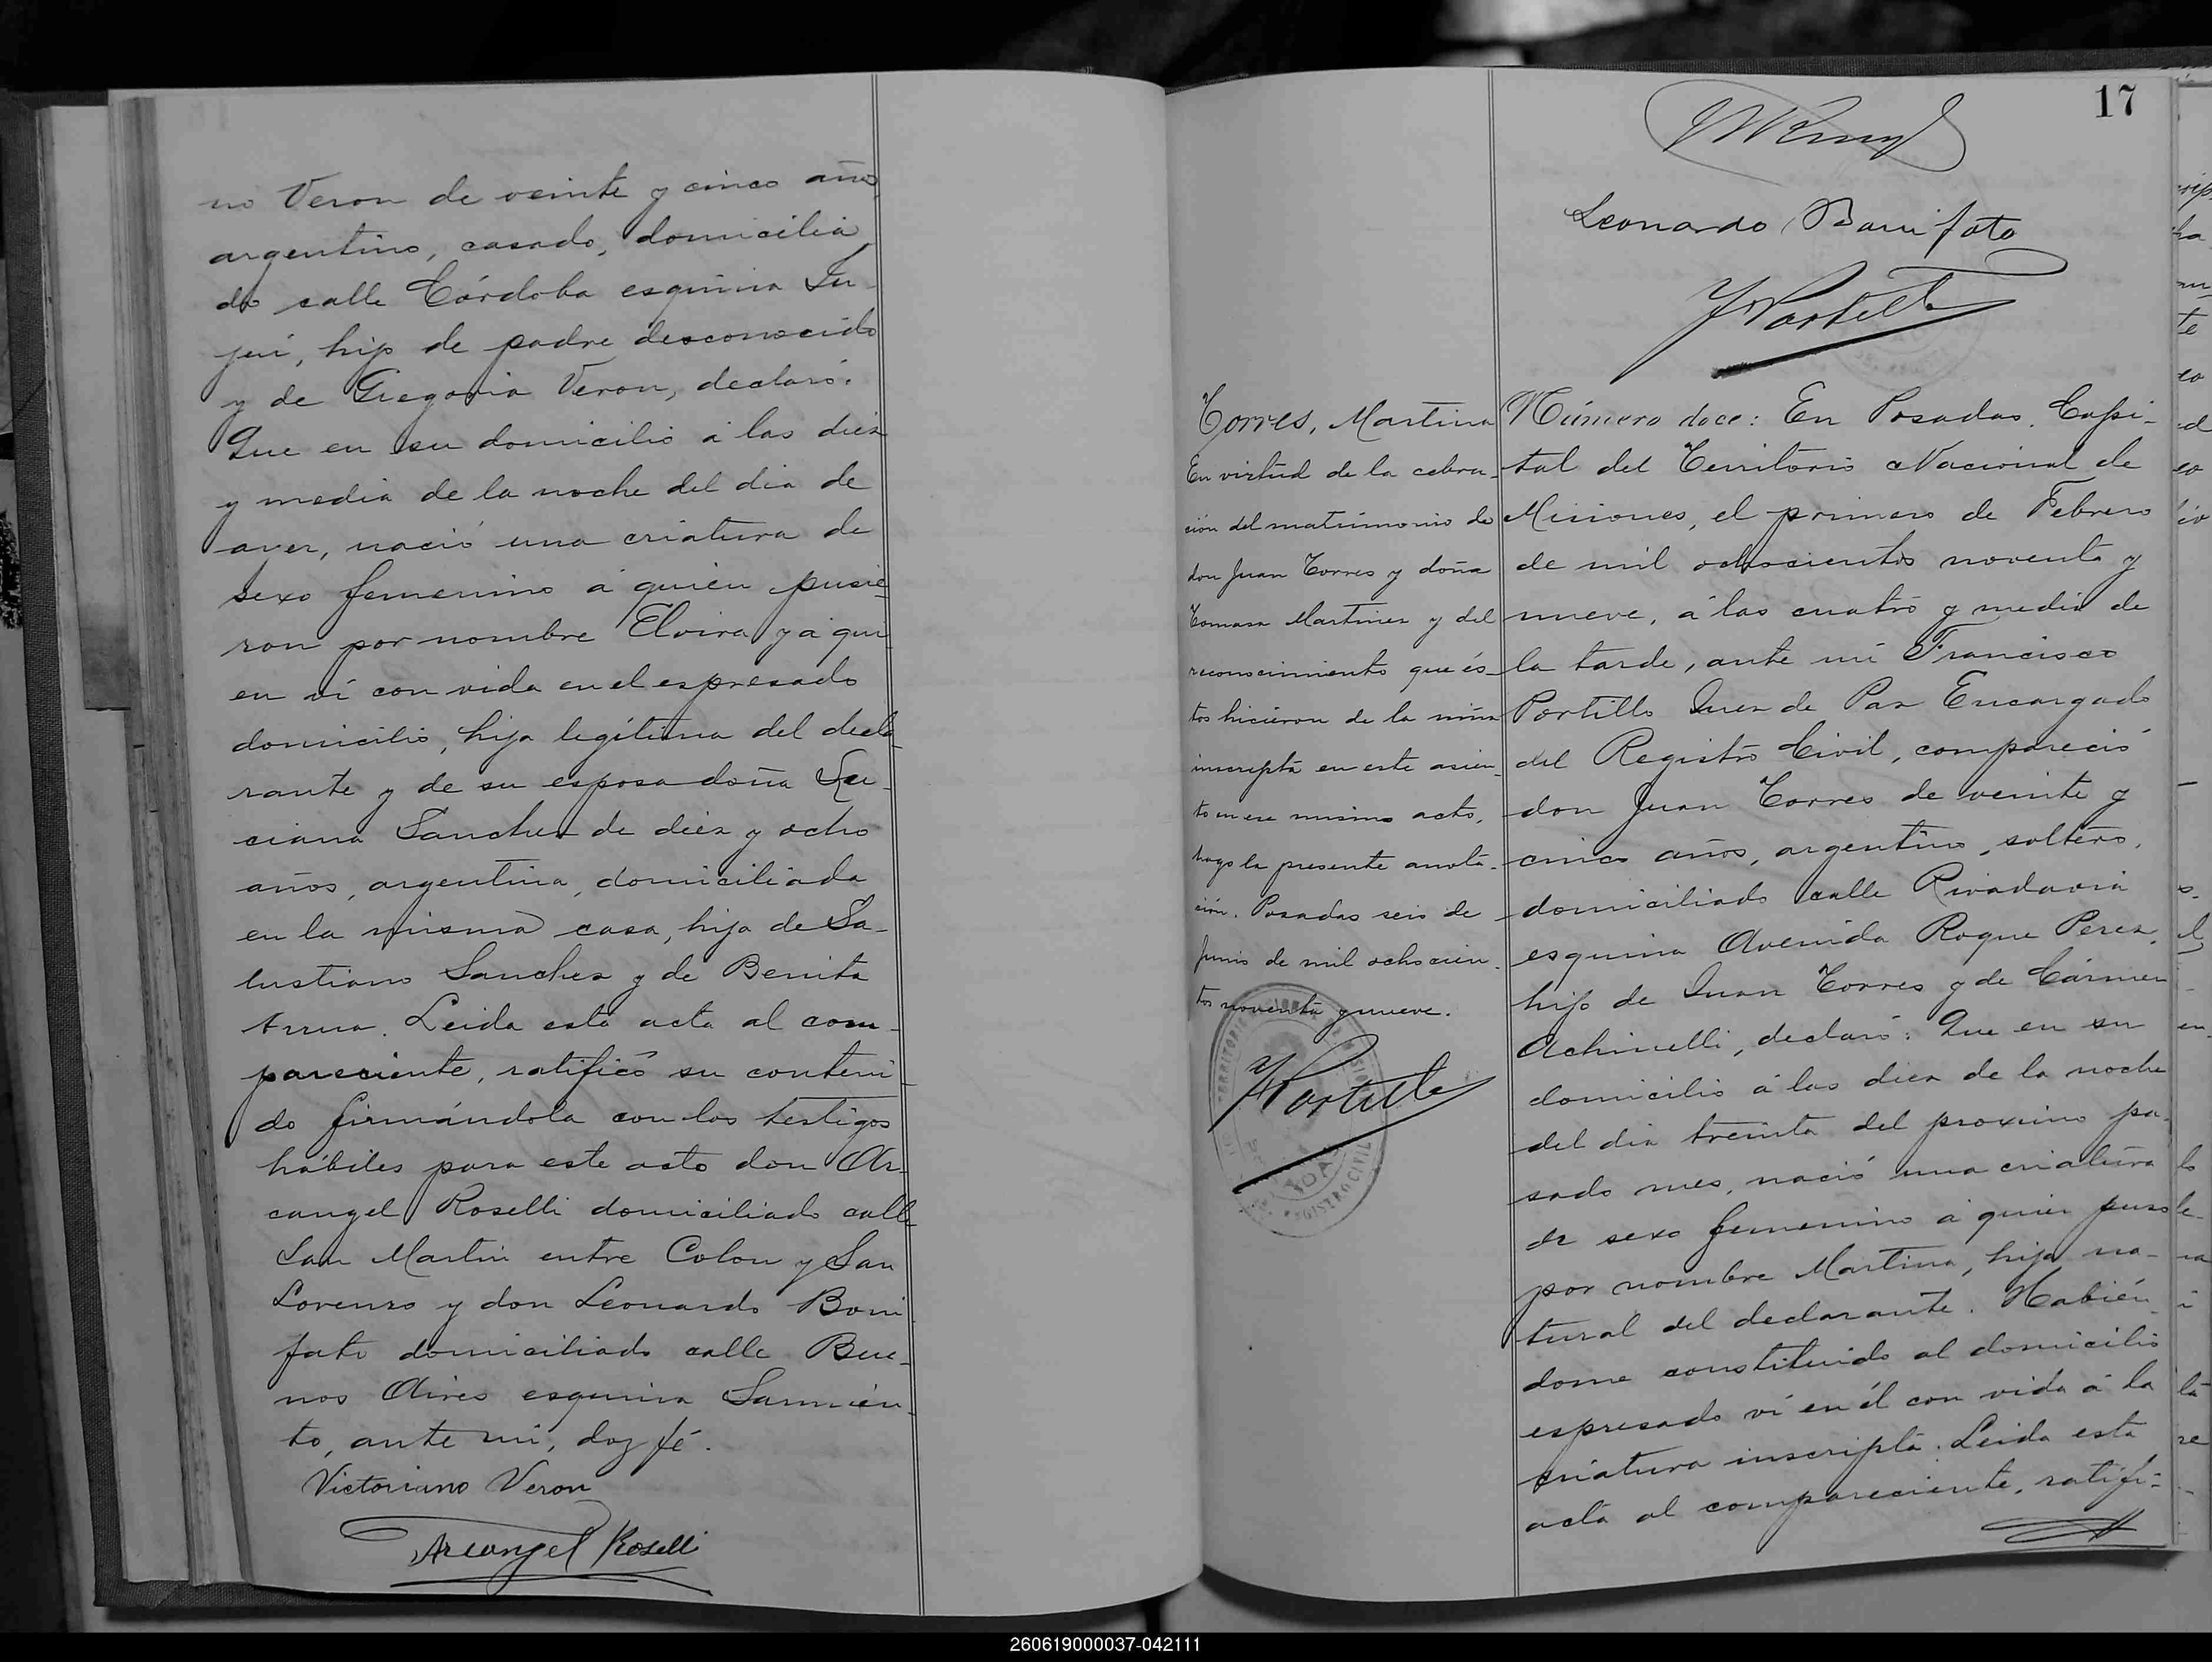 no Veron de veinte y cinco años
argentino, casado, domicilia
do calle Córdoba esquina Ju-
juí, hijo de padre desconocido
y de Gregoria Veron, declaró:
Que en su domicilio á las diez
y media de la noche del dia de
ayer, nació una criatura de
sexo femenino á quien pusie-
ron por nombre Elvira y á qui
en ví con vida en el espresado
domicilio, hija legítima del decla-
rante y de su esposa doña Lu-
ciana Sanchez de diez y ocho
años, argentina, domiciliada
en la misma casa, hija de Sa-
lustiano Sanchez y de Benita
Leida esta acta al com-
pareciente, ratificó su conteni-
do firmándola con los testigos
hábiles para este acto don Ar-
cangel Roselli domiciliado calle
San Martin entre Colon y San
Lorenzo y don Leonardo Boni
fato domiciliado calle Bue-
nos Aires esquina Sarmien-
to, ante mi, doy fé.
Victoriano Veron
Arcangel Roselli
17
Leonardo Bonifato
F Portillo
Torres, Martina
En virtud de la celebra-
ción del matrimonio de
don Juan Torres y doña
Tomasa Martinez y del
reconocimiento que és-
tos hicieron de la niña
inscripta en este asien-
to en ese mismo acto,
hago la presente anota-
ción. Posadas seis de
Junio de mil ochocien-
tos noventa y nueve.
F Portillo
REGISTRO CIVIL
Número doce: En Posadas, Capi-
tal del Territorio Nacional de
Misiones, el primero de Febrero
de mil ochocientos noventa y
nueve, á las cuatro y media de
la tarde, ante mi Francisco
Portillo Juez de Paz Encargado
del Registro Civil, compareció
don Juan Torres de veinte y
cinco años, argentino, soltero,
domiciliado calle Rivadavia
esquina Avenida Roque Perez,
hijo de Juan Torres y de Cármen
Achinelli, declaró: Que en su
domicilio á las diez de la noche
del dia treinta del proximo pa-
sado mes, nació una criatura
de sexo femenino á quien puso
por nombre Martina, hija na-
tural del declarante. Habién-
dome constituido al domicilio
espresado ví en él con vida á la
criatura inscripta. Leida esta
acta al compareciente, ratifi-
260619000037-042111